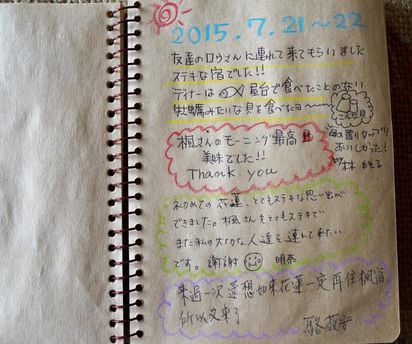 2015.7.21～22
友達のロウさんに連れて来てもらいました
ステキな宿でした!!
ディナーは 屋台で食べたことのない
牡蠣みたいな貝を食べた日～
海の香りタップリ
おいしかった!
楓さんのモーニング最高
美味でした!!
Thank you
初めての花蓮、とてもステキな思い出が
できました。楓さんもとてもステキで
また私の大切な人達を連れて来たい
です。謝謝 明奈
來過一次還想如來花蓮一定再住楓
所以又來了